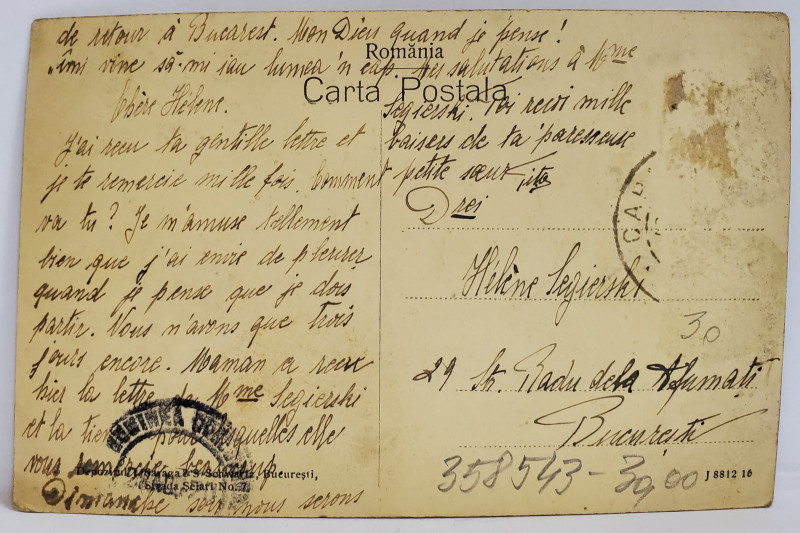 de retour à Bucarest. Mon Dieu quand je pense!
îmi vine să-mi iau lumea'n cap. Mes salutations à Mme
România
Carta Postala
Chère Hélène.
J'ai recu ta gentille lettre et
je te remercie mille fois. Comment
va tu? Je m'amuse tellement
bien que j'ai envie de pleurer
quand je pense que je dois
partir. Nous n'avons que trois
jours encore. Maman a recu
hier la lettre de Mme Segierski
et la tienne pour lesquelles elle
vous remercie beaucoup
Dimanche soir nous serons
Segierski. Toi recoi mille
baisers de ta paresseuse
petite sœur
Hélène Segierski
29 Str. Radu dela Afumați
București
30
358543-30,00
București,
Strada Șelari No. 7.
J 8812 16